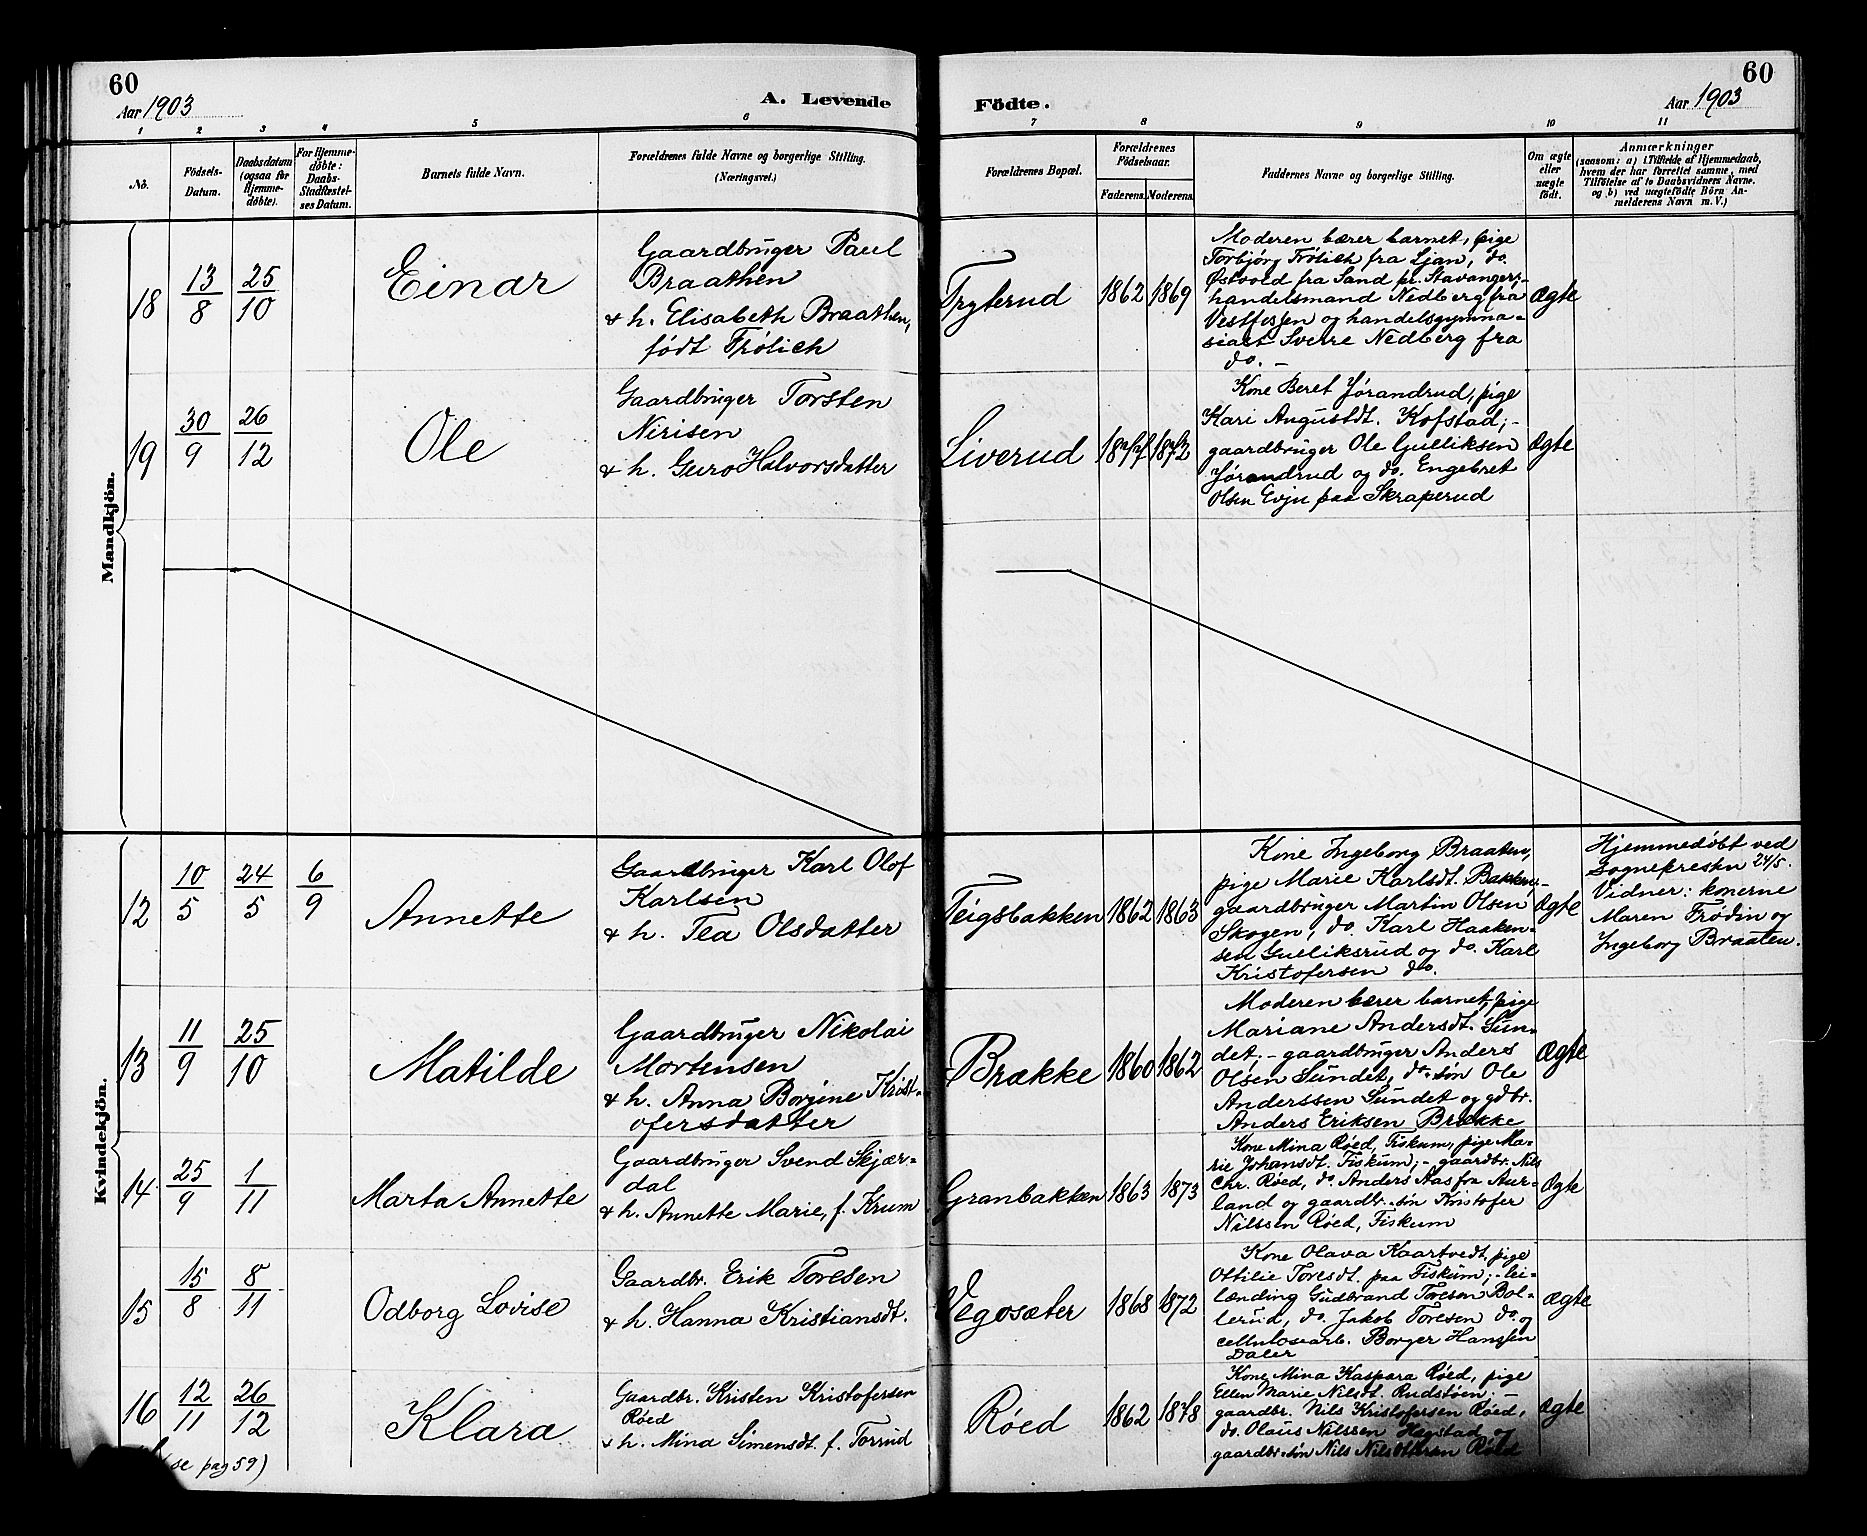 60
Aar 1903
A. Levende
Födte.
60
Aar 1903
1 2 3 4 5 6 7 8 9 10 11
No.
Födsels-
Datum.
Daabsdatum
(ogsaa for
Hjemme-
döbte).
For Hjemme-
döbte:
Daabs-
Stadfæstel-
ses Datum.
Barnets fulde Navn.
Forældrenes fulde Navne og borgerlige Stilling.
(Næringsvei.)
Forældrenes Bopæl.
Forældrenes
Födselsaar.
Faderens.
Moderens.
Faddernes Navne og borgerlige Stilling.
Om ægte
eller
uægte
födt.
Anmærkninger
(saasom: a) i Tilfælde af Hjemmedaab,
hvem der har forrettet samme, med
Tilföielse af to Daabsvidners Navne.
og b) ved uægtefödte Börn An-
melderens Navn m. V.)
Mandkjön.
18
13/8
25/10
Einar
Gaardbruger Paul
Braathen
& h. Elisabeth Braathen,
født Frølich
Tryterud
1862
1869
Moderen bærer barnet, pige
Torbjørg Frølich fra Ljan, do.
Østvold fra Sand pr. Stavanger;-
handelsmand Nedberg fra
Vestfossen og handelsgymna-
siast Sverre Nedberg fra
do. -
Ægte
19
30/9
26/12
Ole
Gaardbruger Torsten
Nirisen
& h. Guro Halvorsdatter
Liverud
1877
1872
Kone Beret Jørandrud, pige
Kari Augustdt. Kofstad; -
gaardbruger Ole Gulliksen
Jørandrud og do. Engebret
Olsen Evju paa Skraperud
Ægte
Kvindekjön.
12
10/5
24/5
6/9
Annette
Gaardbruger Karl Olof
Karlsen
& h. Tea Olsdatter
Teigsbakken
1862
1863
Kone Ingeborg Braaten,
pige Marie Karlsdt. Bakken;-
gaardbruger Martin Olsen
Skogen, do. Karl Haaken-
sen Gulliksrud og do. Karl
Kristofersen do.
Ægte
Hjemmedøbt ved
Sognepresten 24/5.
Vidner: konerne
Maren Frødin og
Ingeborg Braaten.
13
11/9
25/10
Matilde
Gaardbruger Nikolai
Mortensen
& h. Anna Borgine Krist-
ofersdatter
Brække
1860
1862
Moderen bærer barnet, pige
Mariane Andersdt. Sun-
det; - gaardbruger Anders
Olsen Sundet, do.-søn Ole
Anderssen Sundet og gdbr.
Anders Eriksen Brække
Ægte
14
25/9
1/11
Marta Annette
Gaardbruger Svend Skjær-
dal
& h. Annette Marie, f. Krum
Granbakken
1863
1873
Kone Mina Røed, Fiskum, pige Ma-
rie Johansdt. Fiskum; - gaardbr. Nils
Chr. Røed, do. Anders Aas fra Aur-
land og gaardbr.-søn Kristofer
Nilssen Røed, Fiskum
Ægte
15
15/8
8/11
Odborg Lovise
Gaardbr. Erik Toresen
& h. Hanna Kristiansdt.
Vegosæter
1868
1872
Kone Olava Kaartvedt, pige
Ottilie Toresdt. paa Fiskum; - lei-
lænding Gudbrand Toresen Bol-
lerud, do. Jakob Toresen do. og
cellulosearb. Borger Hanssen
Daler
Ægte
16
12/11
26/12
Klara
Gaardbr. Kristen Kristofersen
Røed
& h. Mina Simensdt. f. Torrud
Røed
1862
1878
Kone Mina Kaspara Røed, pige
Ellen Marie Nilsdt. Rudstøen; -
gaardbr. Nils Kristofersen Røed,
do. Olaus Nilssen Hagstad og
gaardbr.søn Nils Røed
Ægte
(se pag 59)